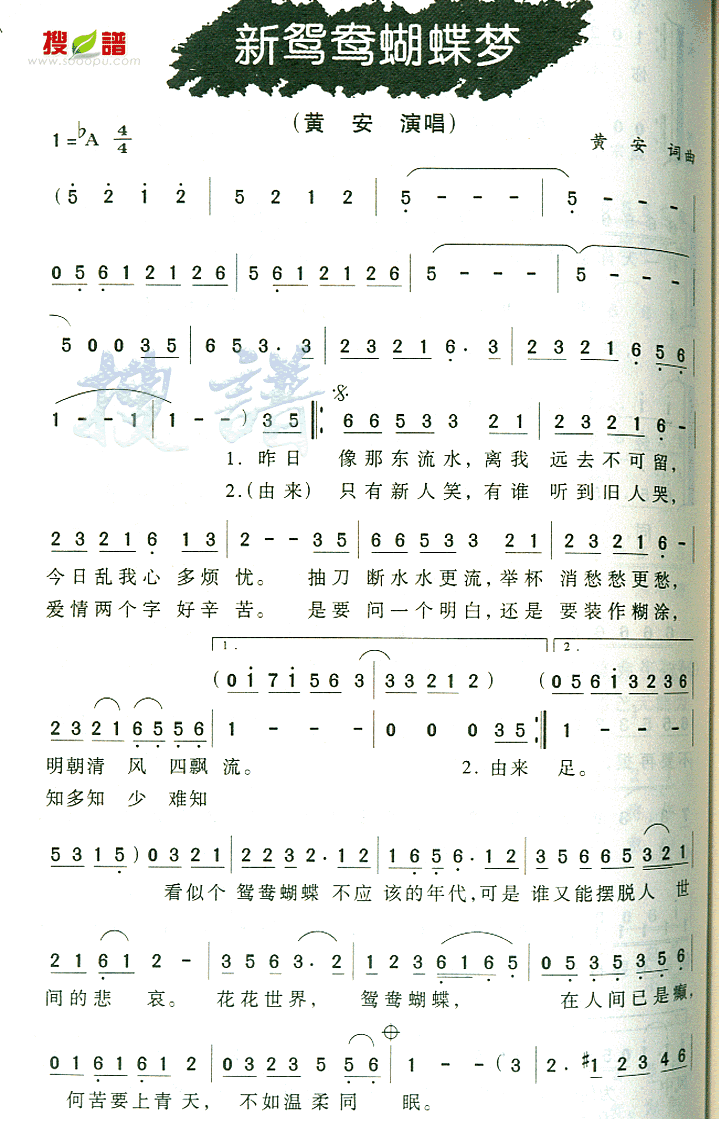 搜譜
www.sooopu.com
新鸳鸯蝴蝶梦
(黄 安 演唱)
1=♭A 4/4
黄 安 词曲
(5 2 1 2 | 5 2 1 2 | 5 - - - | 5 - - -
0 5 6 1 2 1 2 6 | 5 6 1 2 1 2 6 | 5 - - - | 5 - - -
5 0 0 3 5 | 6 5 3·3 | 2 3 2 1 6·3 | 2 3 2 1 6 5 6
1 - - 1 | 1 - - ) 3 5 |: 6 6 5 3 3 2 1 | 2 3 2 1 6 -
1. 昨日 像那东流水,离我 远去不可留,
2.(由来) 只有新人笑,有谁 听到旧人哭,
2 3 2 1 6 1 3 | 2 - - 3 5 | 6 6 5 3 3 2 1 | 2 3 2 1 6 -
今日乱我心 多烦忧。 抽刀 断水水更流,举杯 消愁愁更愁,
爱情两个字 好辛苦。 是要 问一个明白,还是 要装作糊涂,
1. 2.
(0 1 7 1 5 6 3 | 3 3 2 1 2 ) (0 5 6 1 3 2 3 6
2 3 2 1 6 5 5 6 | 1 - - - | 0 0 0 3 5 :| 1 - - -
明朝清 风 四飘流。 2.由来 足。
知多知 少 难知
5 3 1 5 ) 0 3 2 1 | 2 2 3 2·1 2 | 1 6 5 6·1 2 | 3 5 6 6 5 3 2 1
看似个 鸳鸯蝴蝶 不应 该的年代,可是 谁又能摆脱人 世
2 1 6 1 2 - | 3 5 6 3·2 | 1 2 3 6 1 6 5 | 0 5 3 5 3 5 6
间的悲 哀。 花花世界, 鸳鸯蝴蝶, 在人间已是癫,
0 1 6 1 6 1 2 | 0 3 2 3 5 5 6 | 1 - - (3 | 2·#1 2 3 4 6
何苦要上青天, 不如温柔同 眠。
搜譜